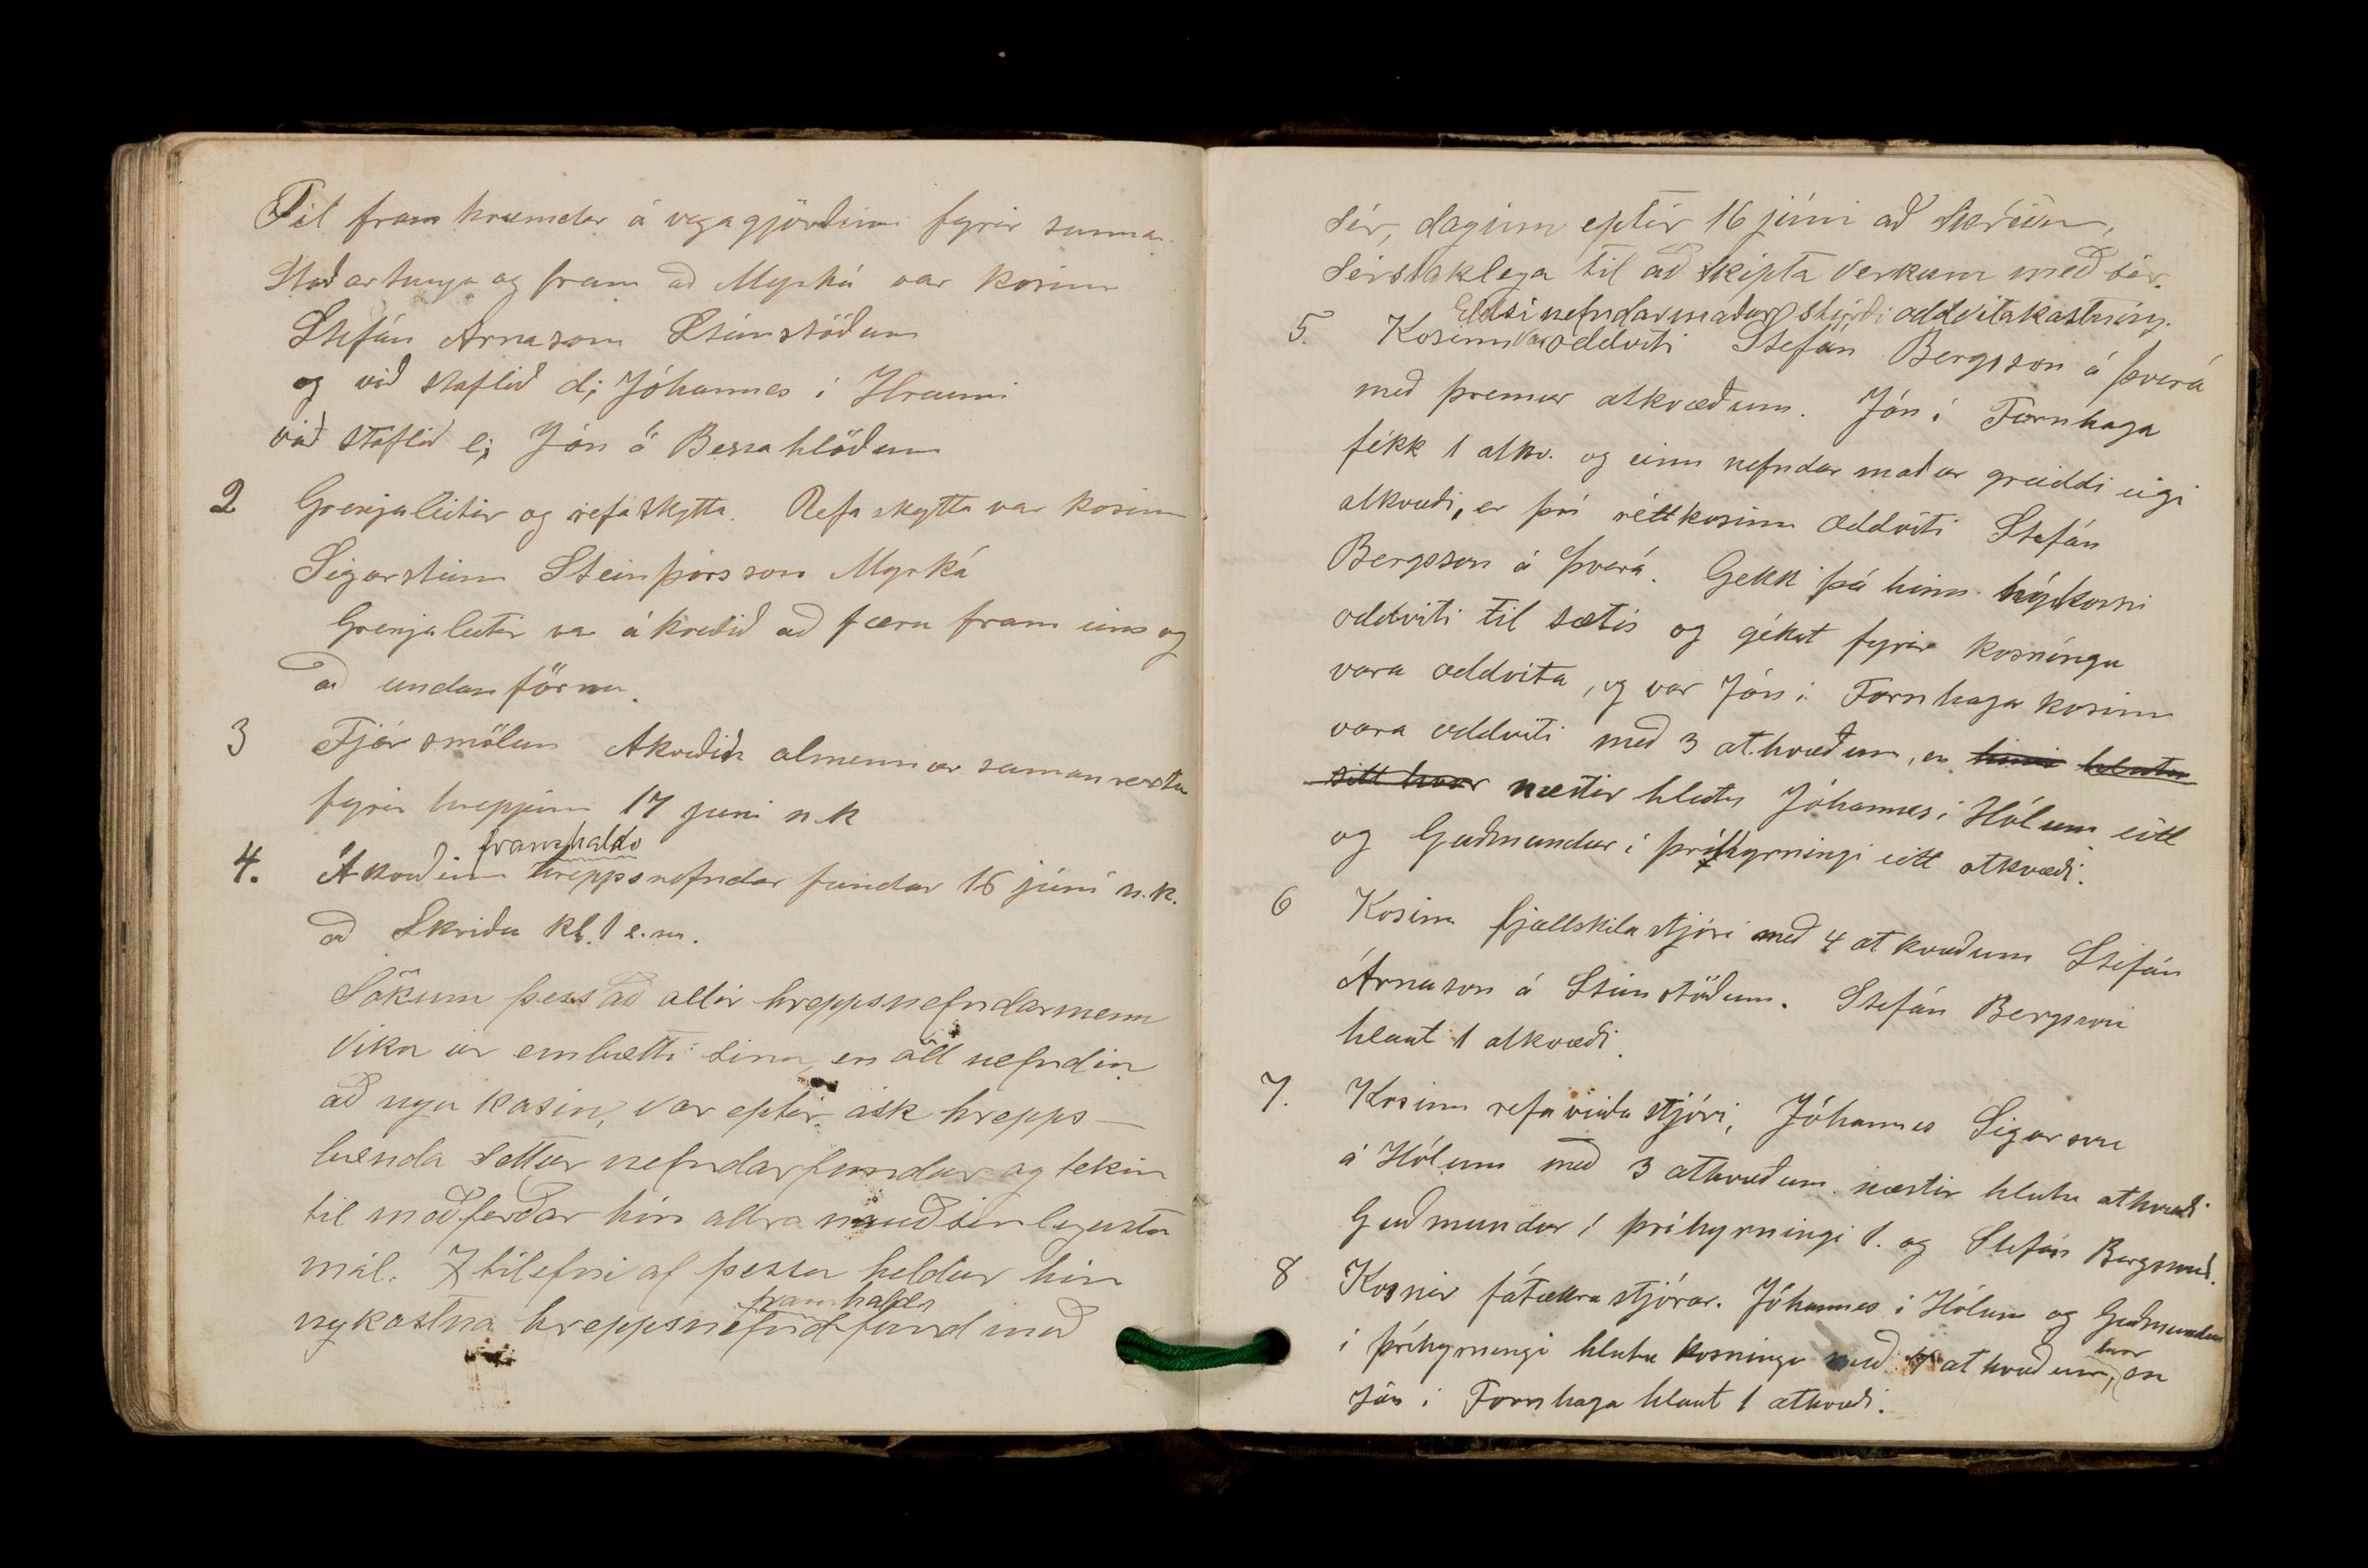 Til framkvæmdar á vegagjörðinni fyrir sunnan
Staðartungu og fram að Myrká var kosinn
Stefán Arnason Steinstöðum
og við staflið d; Jóhannes í Hrauni
við staflið e; Jón á Bessahlöðum
2 Grenjaleitir og refaskytta. Refaskytta var kosinn
Sigursteinn Steinþórsson Myrká
Grenjaleitir var ákveðið að færu fram eins og
að undanförnu.
3 Fjár smölun Akveðin almennar samanrextur
fyrir hreppinn 17 juni n.k
framhalds
4. Ákveðinn hreppsnefndar fundar 16 júní n.k.
að Skriðu kl. 1 e.m.
Sökum þess að allir hreppsnefndarmenn
víkn úr embætti sinu, en öll nefndin
að nyu kosin, var eptir ósk hrepps-
bænda settur nefndarfundur og tekin
til meðferðar hin allra nauðsinlegustu
mál. I tilefni af þessu heldur hin
framhalds
nykostna hreppsnefnd fund með
sér, daginn eptir 16 júní að Skriðu,
sérstaklega til að skipta verkum með sér.
Eldsti nefndarmaður stýrði oddvitakostning.
5. Kosinn var oddviti Stefán Bergsson á Þverá
með þremur atkvæðum. Jón í Fornhaga
fékk 1 atkv. og einn nefndar maður greiddi eigi
atkvæði, er því réttkosinn oddviti Stefán
Bergsson á Þverá. Gekk þá hinn nýkosni
oddviti til sætis og gekst fyrir kosníngu
vara oddvita, og var Jón í Fornhaga kosinn
vara oddviti með 3 atkvæðum, en hinir hlutu
sitt hvor næstir hlutu Jóhannes í Hólum eitt
og Guðmundur í Þríhyrningi eitt atkvæði.
6 Kosinn fjallskilastjóri með 4 atkvæðum Stefán
Árnason á Steinstöðum. Stefán Bergsson
hlaut 1 atkvæði.
7. Kosinn refaveiðastjóri, Jóhannes Sigurson
á Hólum með 3 atkvæðum næstir hlutu atkvæði
Guðmundur í Þríhyrningi 1. og Stefán Bergsson 1.
8 Kosnir fátækrastjórar. Jóhannes í Hólum og Guðmundur
hvor
í Þríhyrningi hlutu kosningu með 4 atkvæðum, en
Jón í Fornhaga hlaut 1 atkvæði.